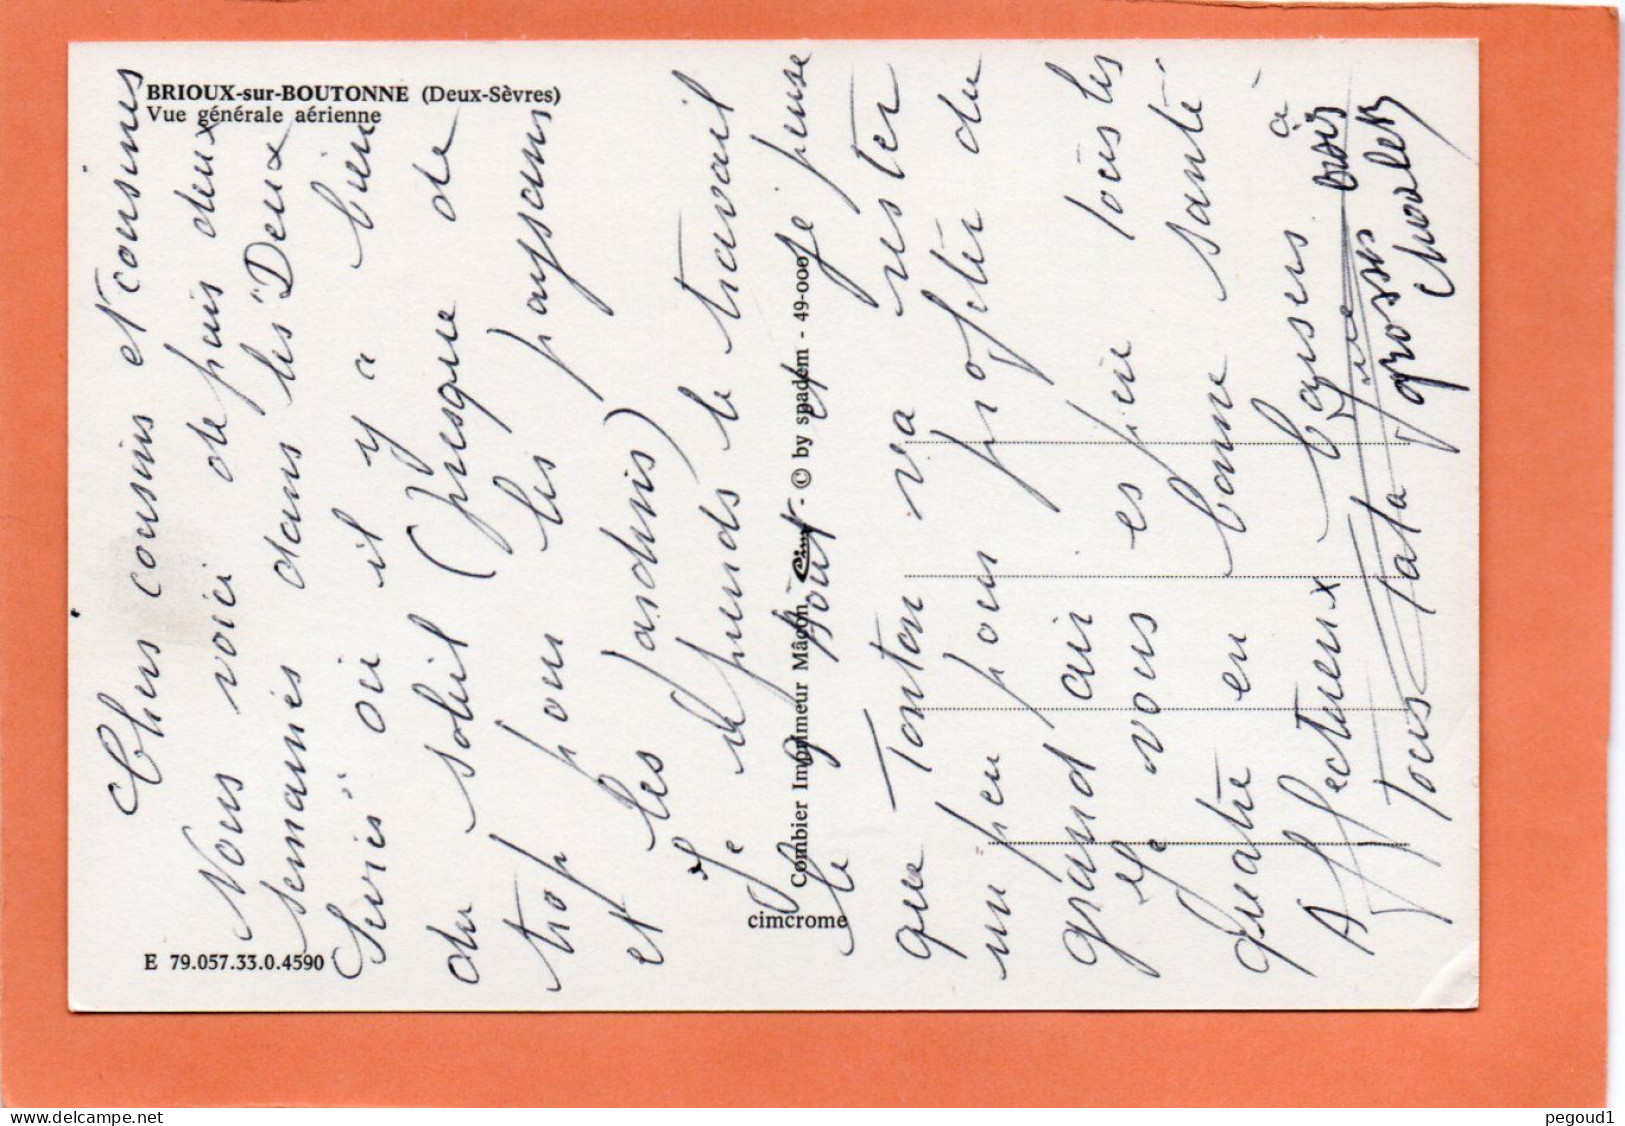 BRIOUX-sur-BOUTONNE (Deux-Sèvres)
Vue générale aérienne
Chers cousins et cousines
Nous voici depuis deux
semaines dans les "Deux
Sèvres" où il y a bien
du soleil (presque de
trop pour les paysans
et les jardins)
Je reprends le travail
le août et je pense
que Tonton va rester
un peu pour profiter du
grand air
Je vous espère tous les
quatre en bonne santé
Affectueux baisers à
Tous Tata
grosses
E 79.057.33.0.4590
cimcrome
Combier Imprimeur Mâcon Cim - © by spadem - 49-000
pegoud1